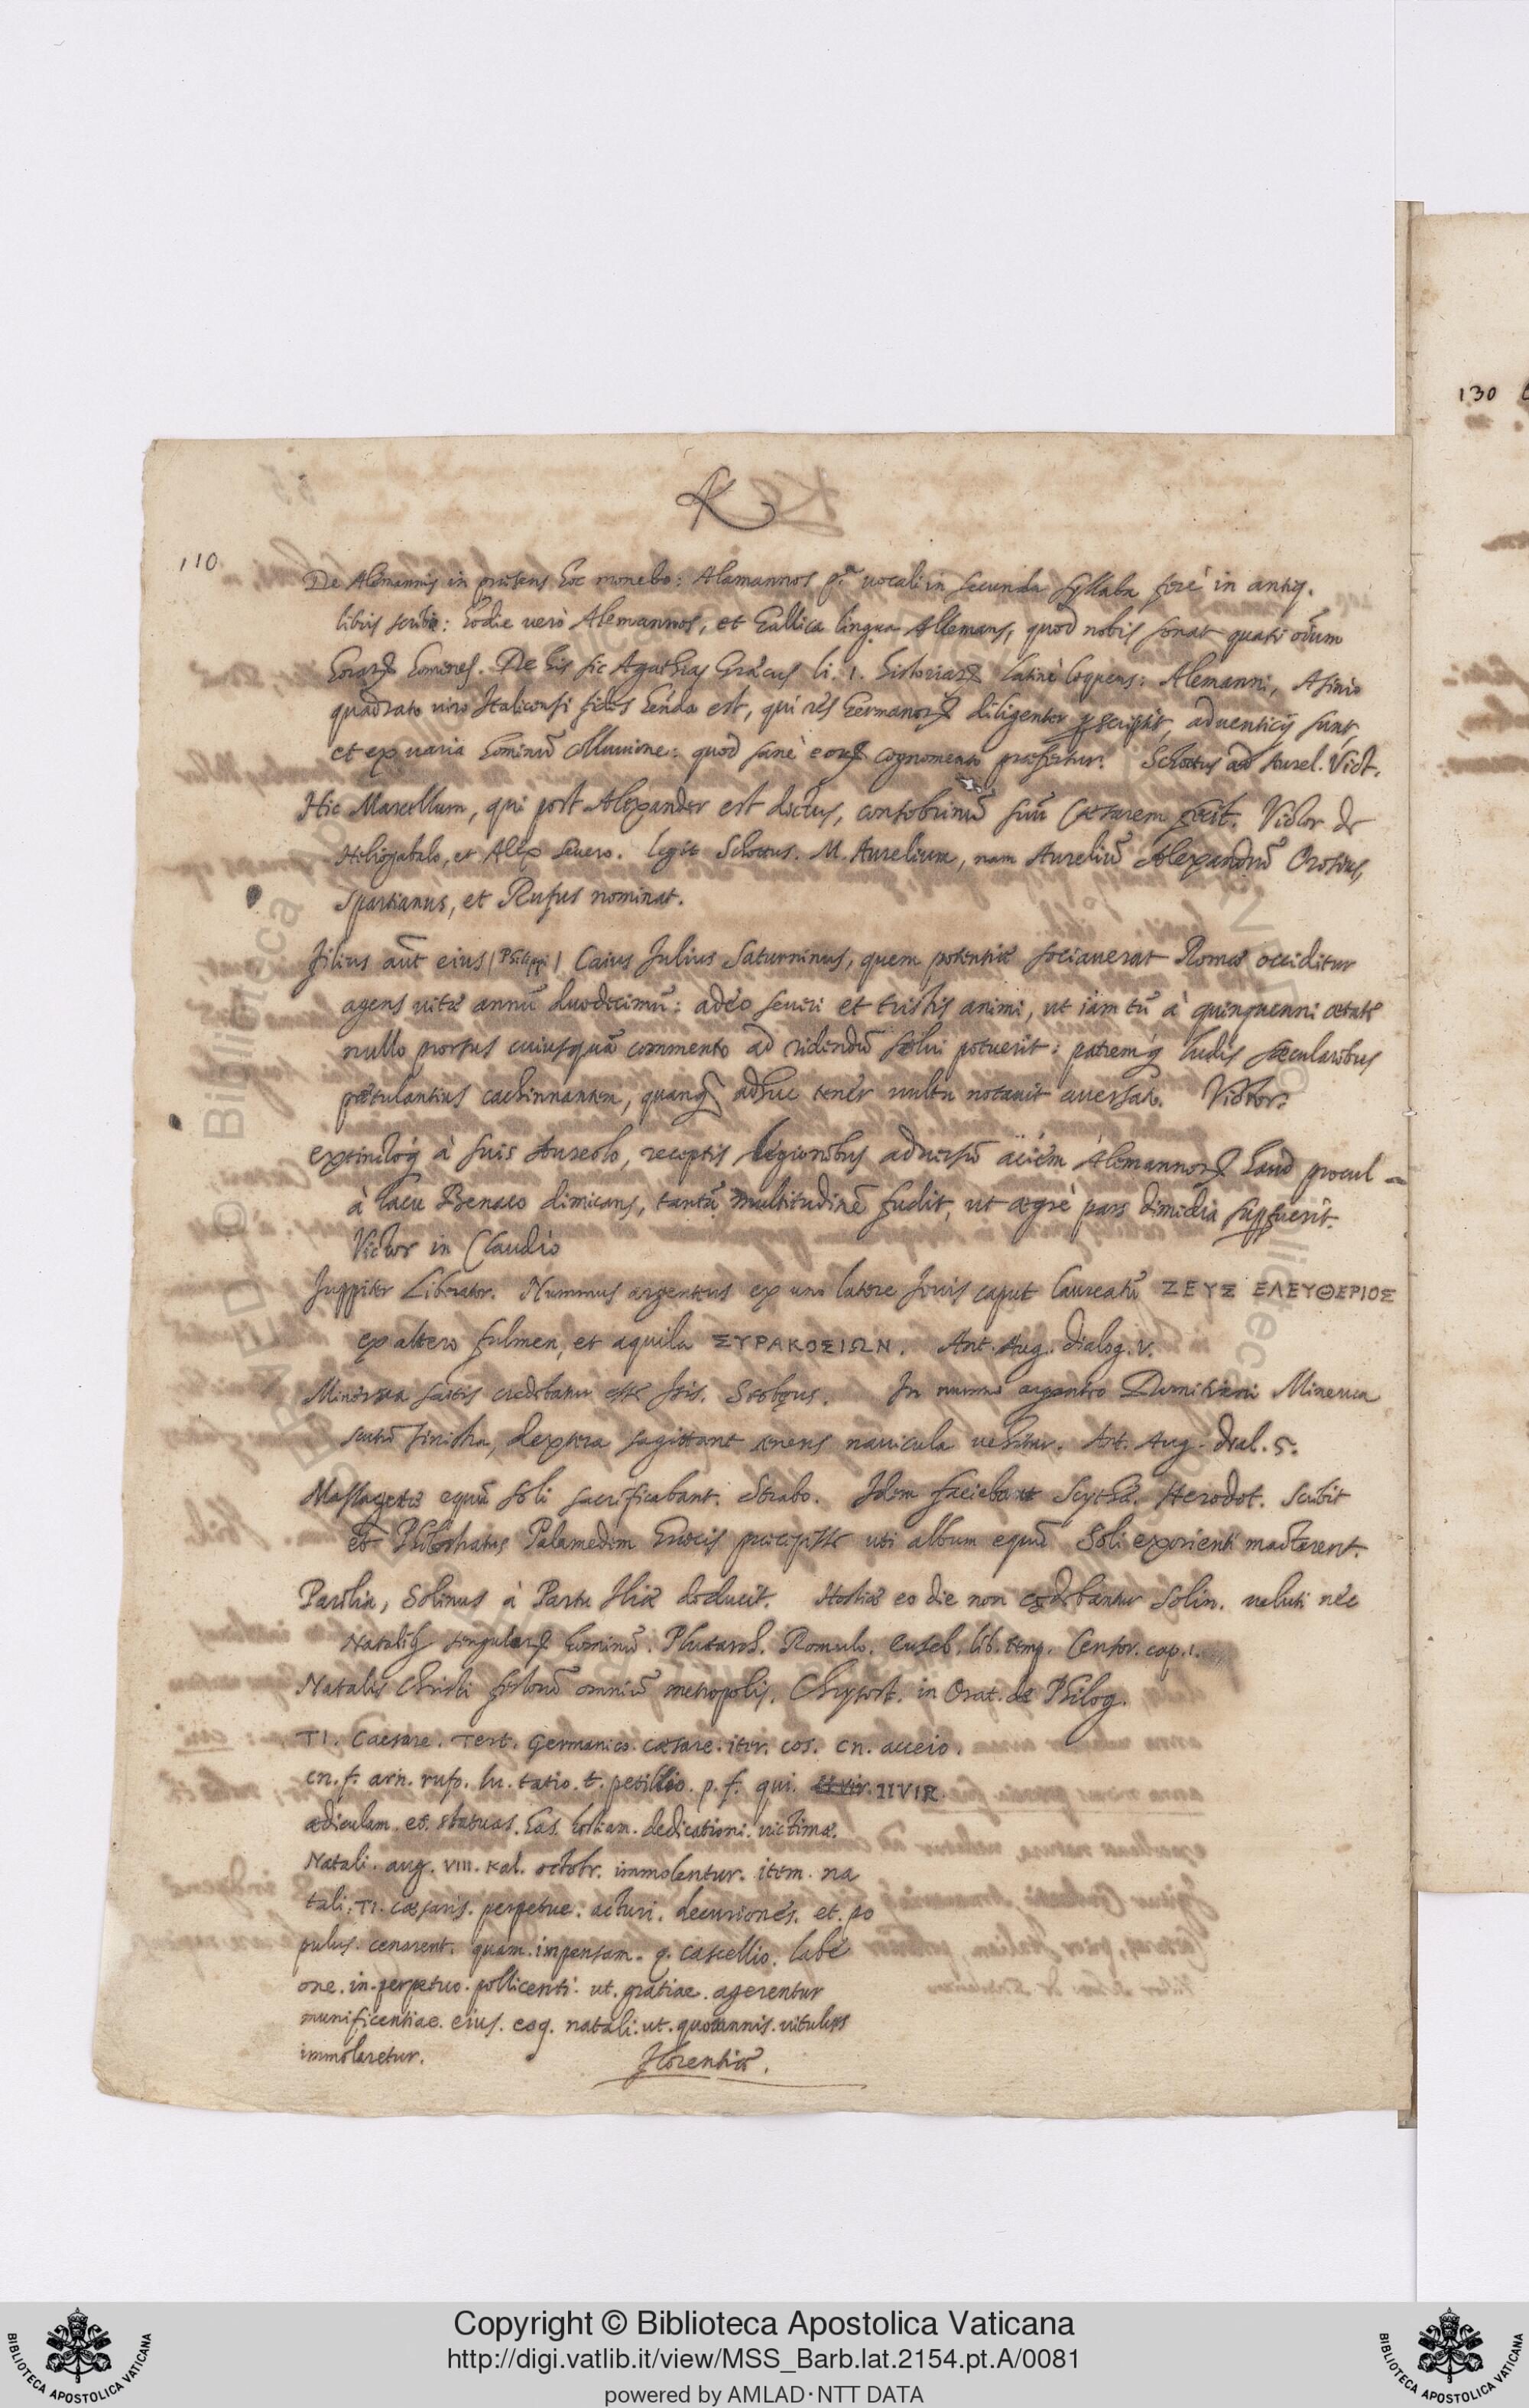 K
110
130
De Alemannis in præsens hoc monebo: Alamannos pª vocali in secunda syllaba ferè in antiq.
libris scribi: hodie verò Alemannos, et Gallica lingua Allemans, quod nobis sonat quasi oĩum
horarꝫ homines. De his sic Agathias Græcus li. 1. historiarꝫ latinè loquens: Alemanni, Asinio
quadrato viro Italiensi fides hẽnda est, qui res Germanorꝫ diligenter ꝑscripsit, adventicij sunt,
et ex varia hominũ colluvione: quod sanè eorꝫ cognomento præfertur. Schottus ad Aurel. Vict.
Hic Marcellum, qui post Alexander est dictus, consobrinũ suũ Cæsarem fecit. Victor de
Heliogabalo, et Alex Severo. legit Schottus. M. Aurelium, nam Aureliũ Alexandrũ Orosius,
Spartianus, et Rufus nominat.
filius aũt eius (Philippi) Caius Julius Saturninus, quem potentiæ sociaverat Romæ occiditur
agens vitæ annũ duodecimũ: adeo severi et tristis animi, ut iam tũ à quinquenni ætate
nullo prorsus cuiusquã commento ad ridendũ solvi potuerit: patremq́ ludis sæcularibus
petulantius cachinnantem, quanq̃ adhuc tener vultu notavit aversato. Victor.
extinctoq́ à suis Aureolo, receptis legionibus adversũ aciem Alemannorꝫ haud procul
à lacu Benaco dimicans, tantũ multitudinẽ fudit, ut ægrè pars dimidia supfuerit.
Victor in Claudio
Juppiter Liberator. Nummus argenteus ex uno latere Jovis caput laureatũ ΖΕΥΣ ΕΛΕΥΘΕΡΙΟΣ
ex altero fulmen, et aquila ΣΥΡΑΚΟΣΙΩΝ. Ant. Aug. dialog. V.
Minerva saitis credebatur esse Isis. In nummo argenteo Domitiani Minerva
scutũ sinistra, dextera sagittant tenens navicula vehitur. Ant. Aug. dial. 5.
Massagetæ equũ soli sacrificabant. Strabo. Idem faciebant Scythæ. Herodot. Scribit
et Philostratus Palamedem Græcis præcepisse uti album equũ Soli exorienti mactarent.
Parilia, Solinus à Partu Iliæ deducit. Hostiæ eo die non cædebantur Solin. veluti nec
Natalibꝫ singularꝫ hominũ. Plutarch. Romulo. Euseb. lib. temp. Censor. cap. 1.
Natalis Christi festorũ omniũ metropolis. Chrysost. in Orat. de Philog.
TI. Caesare. Tert. Germanico. cæsare. iter. cos. cn. acceio.
cn. f. arn. rufo. lu. tatio. t. petillio. p. f. qui. IIVIR.
ædiculam. et. statuas. has. hostiam. dedicationi. victimæ.
Natali. aug. VIII. Kal. octobr. immolentur. item. na
tali. TI. cæsaris. perpetue. acturi. decuriones. et. po
pulus. cenarent. quam. inpensam. q. cascellio. labe
one. in. perpetuo. pollicenti. ut. gratiae. agerentur
munificentiae. eius. eoq. natali. ut. quotannis. vitulus
immolaretur. Florentiæ.
Copyright © Biblioteca Apostolica Vaticana
http://digi.vatlib.it/view/MSS_Barb.lat.2154.pt.A/0081
powered by AMLAD·NTT DATA
BIBLIOTECA APOSTOLICA VATICANA
BIBLIOTECA APOSTOLICA VATICANA